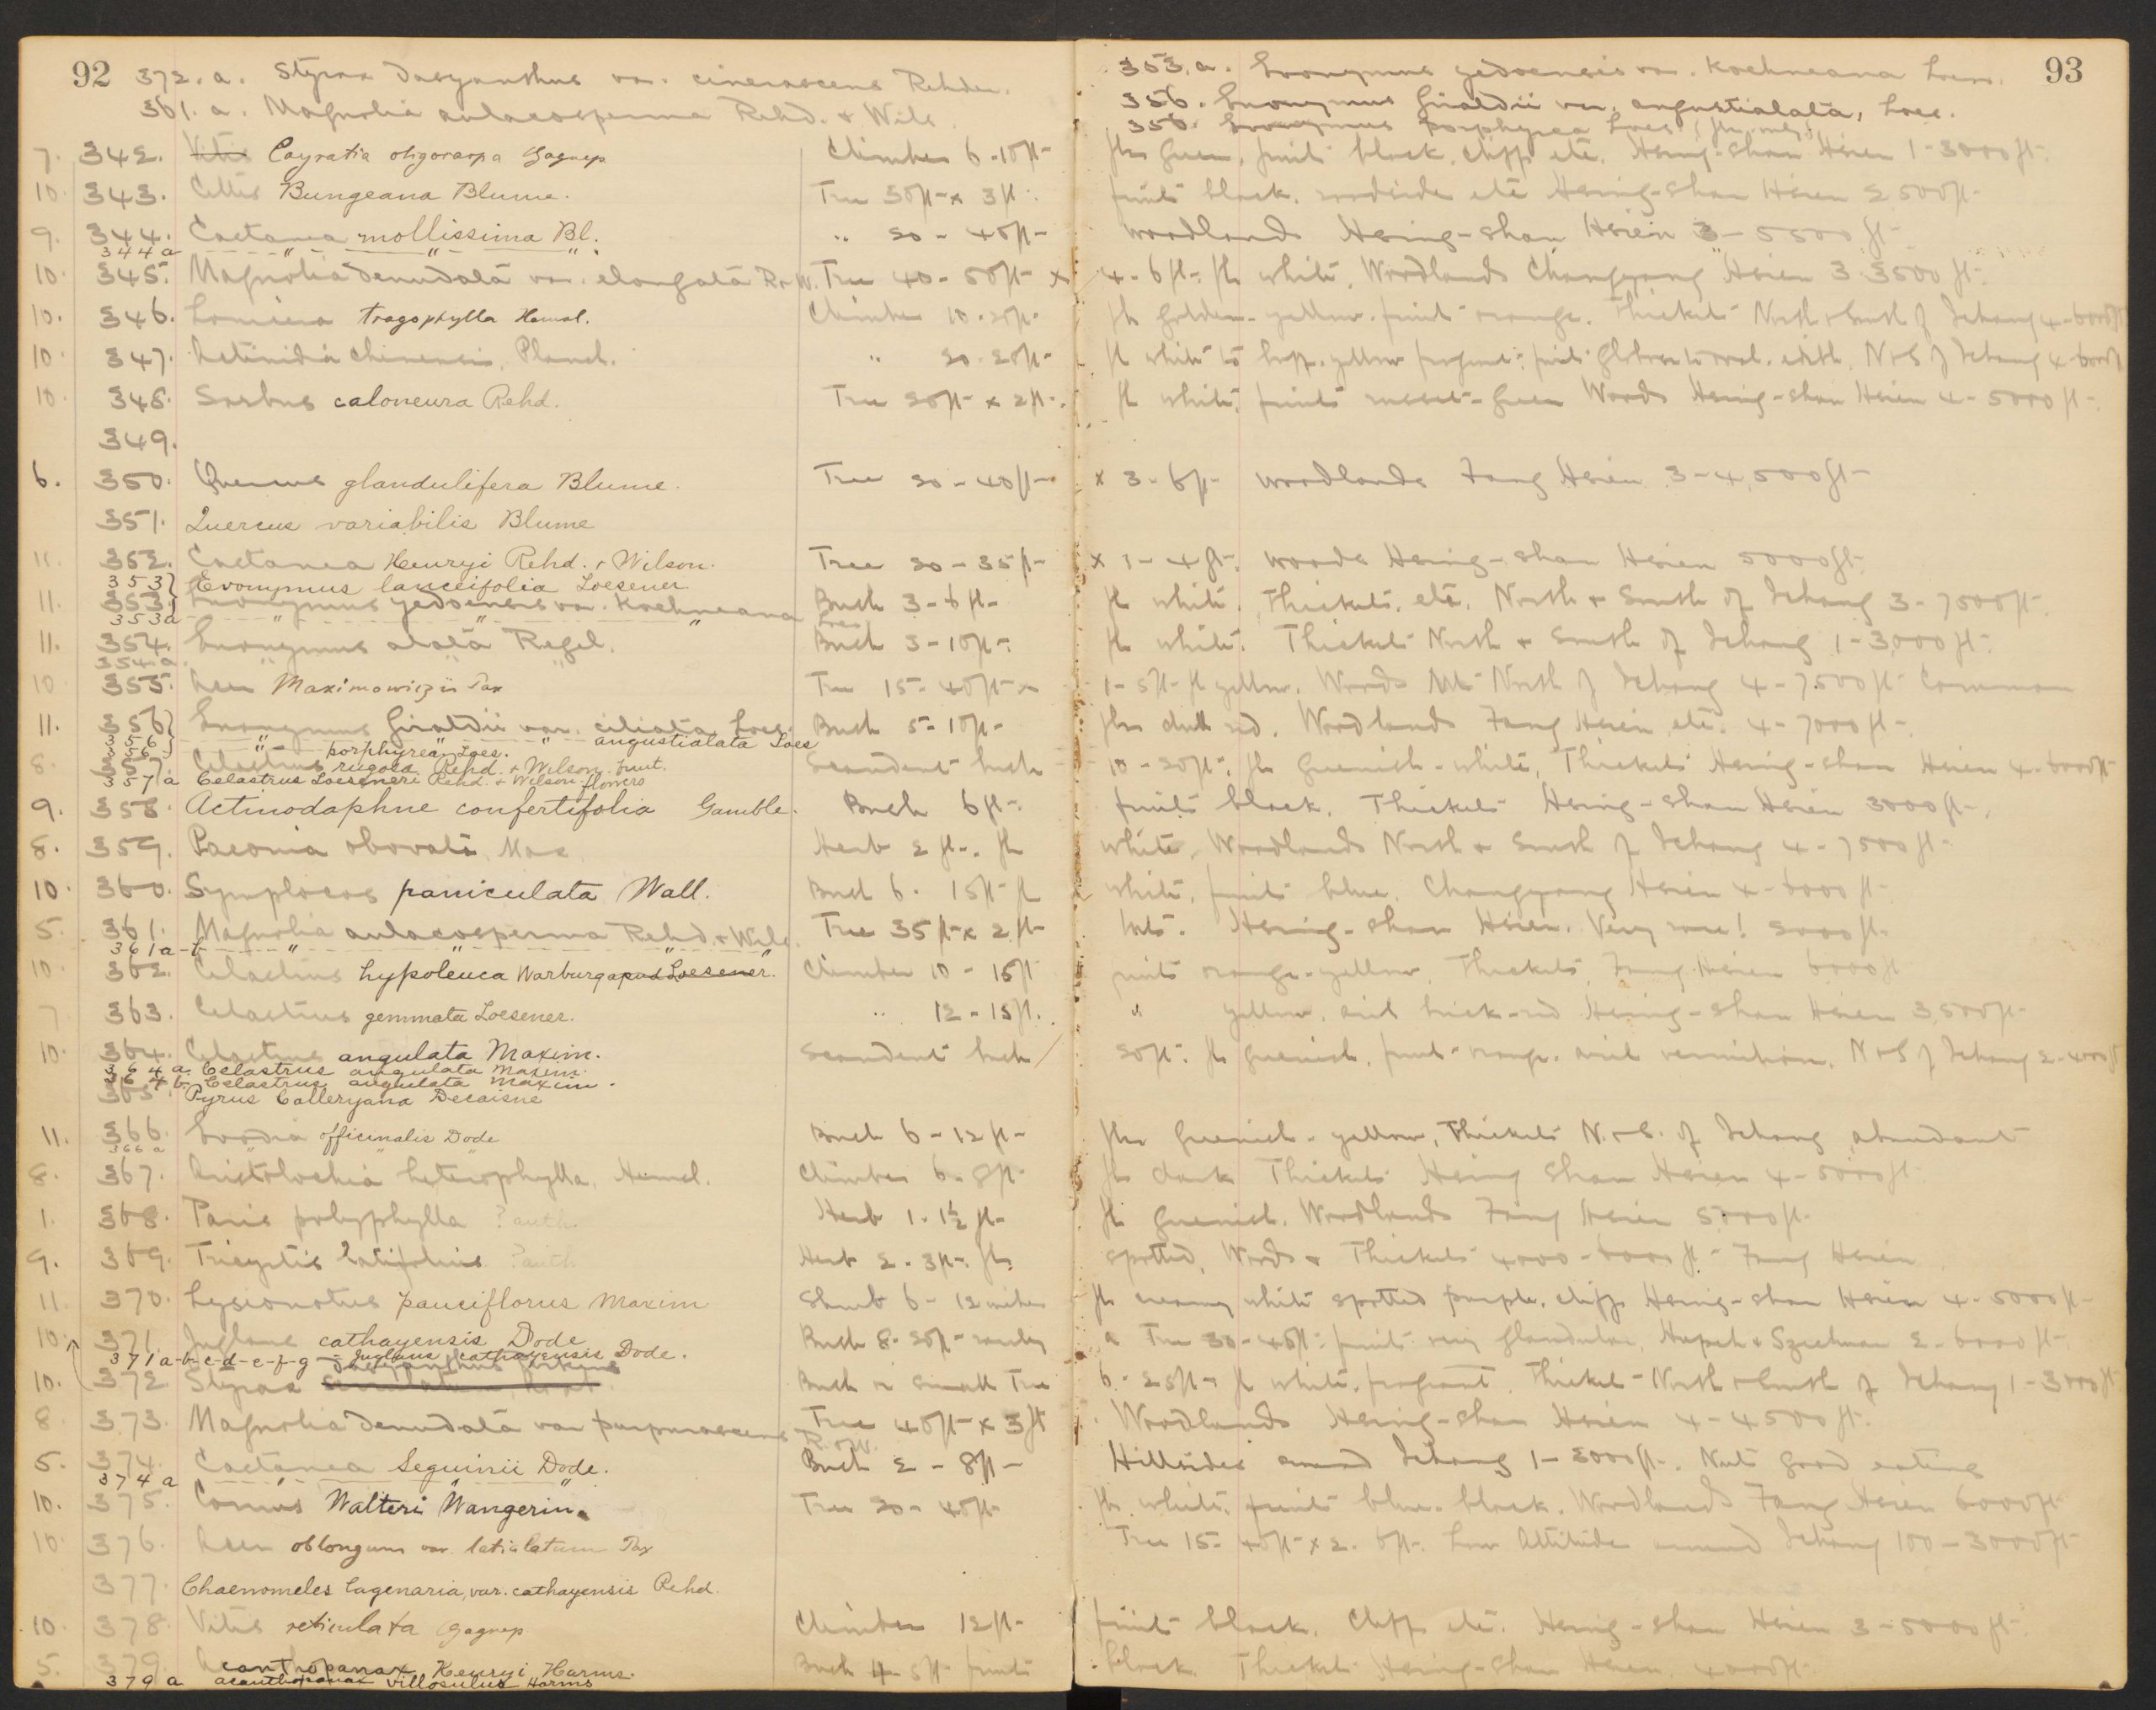 92 372.a. Styrax dasyanthus var. cinerascens Rehder.
361.a. Magnolia aulacosperma Rehd. & Wils.
7. 342. Vitis Cayratia oligocarpa Gagnep Climber 6-10ft-
10. 343. Celtis Bungeana Blume. Tree 30ft- x 3ft.
9. 344. Castanea mollissima Bl. " 20-40ft-
344a " " "
10. 345. Magnolia denudata var. elongata R&W. Tree 40-50ft x
10. 346. Lonicera tragophylla Hemsl. Climber 10-20ft-
10. 347. Actinidia chinensis, Planch. " 20-25ft-
10. 348. Sorbus caloneura Rehd. Tree 20ft- x 2ft-.
349.
6. 350. Quercus glandulifera Blume. Tree 20-40ft-
351. Quercus variabilis Blume
11. 352. Castanea Henryi Rehd. & Wilson. Tree 20-35ft-
353} Evonymus lanceifolia Loesener
11. 353} Euonymus yedoensis var. Koehneana Loes Bush 3-6ft-
353a " " "
11. 354. Euonymus alata Regel. Bush 3-10ft-.
354.a " " "
10 355. Acer Maximowiczii Pax Tree 15-40ft- x
11. 356} Euonymus Giraldii var. ciliata Loes. Bush 5-10ft-
356 " " " angustialata Loes
356} " porphyrea Loes.
8. 357 Celastrus rugosa Rehd. & Wilson. fruit. Scandent bush
357a Celastrus Loeseneri Rehd. & Wilson. flowers
9. 358. Actinodaphne confertifolia Gamble. Bush 6ft-.
8. 359. Paeonia obovata, Max. Herb 2ft-. fls
10. 360. Symplocos paniculata Wall. Bush 6-15ft- fl
5. 361. Magnolia aulacosperma Rehd. & Wils. Tree 35ft- x 2ft-
361a-b " " " "
10. 362. Celastrus hypoleuca Warburg apud Loesener. Climber 10-15ft
7 363. Celastrus gemmata Loesener. " 12-15ft.
10. 364. Celastrus angulata Maxim. Scandent bush
364a. Celastrus angulata Maxim.
364b. Celastrus angulata Maxim.
365. Pyrus Calleryana Decaisne
11. 366. Evodia officinalis Dode Bush 6-12ft-
366a " " "
8. 367. Aristolochia heterophylla, Hemsl. Climber 6-8ft-
1. 368. Paris polyphylla ? auth. Herb 1-1½ft-
9. 369. Tricyrtis latifolia ? auth Herb 2-3ft-. fls
11. 370. Lysionotus pauciflorus Maxim Shrub 6-12 inches
10. 371. Juglans cathayensis Dode Bush 8-20ft- rarely
371a-b-c-d-e-f-g - Juglans cathayensis Dode.
10. 372. Styrax dasyanthus Perkins Bush or small Tree
8 373. Magnolia denudata var purpurascens R.&W. Tree 40ft- x 3ft
5. 374. Castanea Seguinii Dode. Bush 2-8ft-
374a " " "
10. 375. Cornus Walteri Wangerin. Tree 20-40ft-
10. 376. Acer oblongum var. latialatum Pax
377. Chaenomeles lagenaria, var. cathayensis Rehd.
10. 378. Vitis reticulata Gagnep Climber 12ft-
5. 379. Acanthopanax Henryi Harms. Bush 4-5ft- fruits
379a Acanthopanax villosulus Harms
353.a. Euonymus yedoensis var. Koehneana Loes. 93
356. Euonymus Giraldii var. angustialata, Loes.
356. Euonymus porphyrea Loes. (fls. only)
fls green, fruits black, cliffs etc. Hsing-shan Hsien 1-3000ft-.
fruits black, roadside etc Hsing-shan Hsien 2500ft-
Woodlands Hsing-shan Hsien 3-5500ft-
4-6ft-. fls white, Woodlands Changyang Hsien 3-3500ft-.
fls golden-yellow. fruit orange. Thickets North & South of Ichang 4-6000ft
fl white to buff-yellow fragrant: fruit globose to oval. edible. N&S of Ichang 4-6000ft
fl white, fruits russet-green Woods Hsing-shan Hsien 4-5000ft-.
x 3-6ft- woodlands Fang Hsien 3-4,500ft-
x 1-4ft-. woods Hsing-shan Hsien 5000ft-.
fl white. Thickets, etc. North & South of Ichang 3-7500ft-.
fls white. Thickets North & South of Ichang 1-3,000ft-.
1-5ft- fl yellow, Woods Mts North of Ichang 4-7,500ft- Common
fls dull red. Woodlands Fang Hsien etc. 4-7000ft-.
10-20ft-, fls greenish-white, Thickets Hsing-shan Hsien 4-6000ft-
fruits black, Thickets Hsing-shan Hsien 3000ft-.
white, Woodlands North & South of Ichang 4-7500ft-
white, fruits blue. Changyang Hsien 4-6000ft-
Hsing-shan Hsien. Very rare! 5000ft-
fruits orange-yellow, Thickets, Fang Hsien 6000ft
" yellow, aril brick-red Hsing-shan Hsien 3,500ft-
20ft-. fls greenish, fruit orange. aril vermilion. N&S of Ichang 2-4000ft
fls greenish-yellow, Thickets N.&S. of Ichang abundant
fls dark Thickets Hsing Shan Hsien 4-5000ft-.
fls greenish. Woodlands Fang Hsien 5000ft-
spotted, Woods & Thickets 4000-6000ft- Fang Hsien
fls creamy white spotted purple, cliffs Hsing-shan Hsien 4-5000ft-
a Tree 30-45ft-: fruit very glandular, Hupeh & Szechuan 2-6000ft-.
6-25ft- fl white, fragrant, Thickets North & South of Ichang 1-3000ft
Woodlands Hsing-shan Hsien 4-4500ft-.
Hillsides around Ichang 1-3000ft-. Nuts good eating
fls white, fruits blue-black. Woodlands Fang Hsien 6000ft-
Tree 15-40ft- x 2-6ft-. Low Altitudes around Ichang 100-3000ft-
fruit black. Cliffs etc. Hsing-shan Hsien 3-5000ft-.
black Thickets Hsing-shan Hsien, 4000ft-